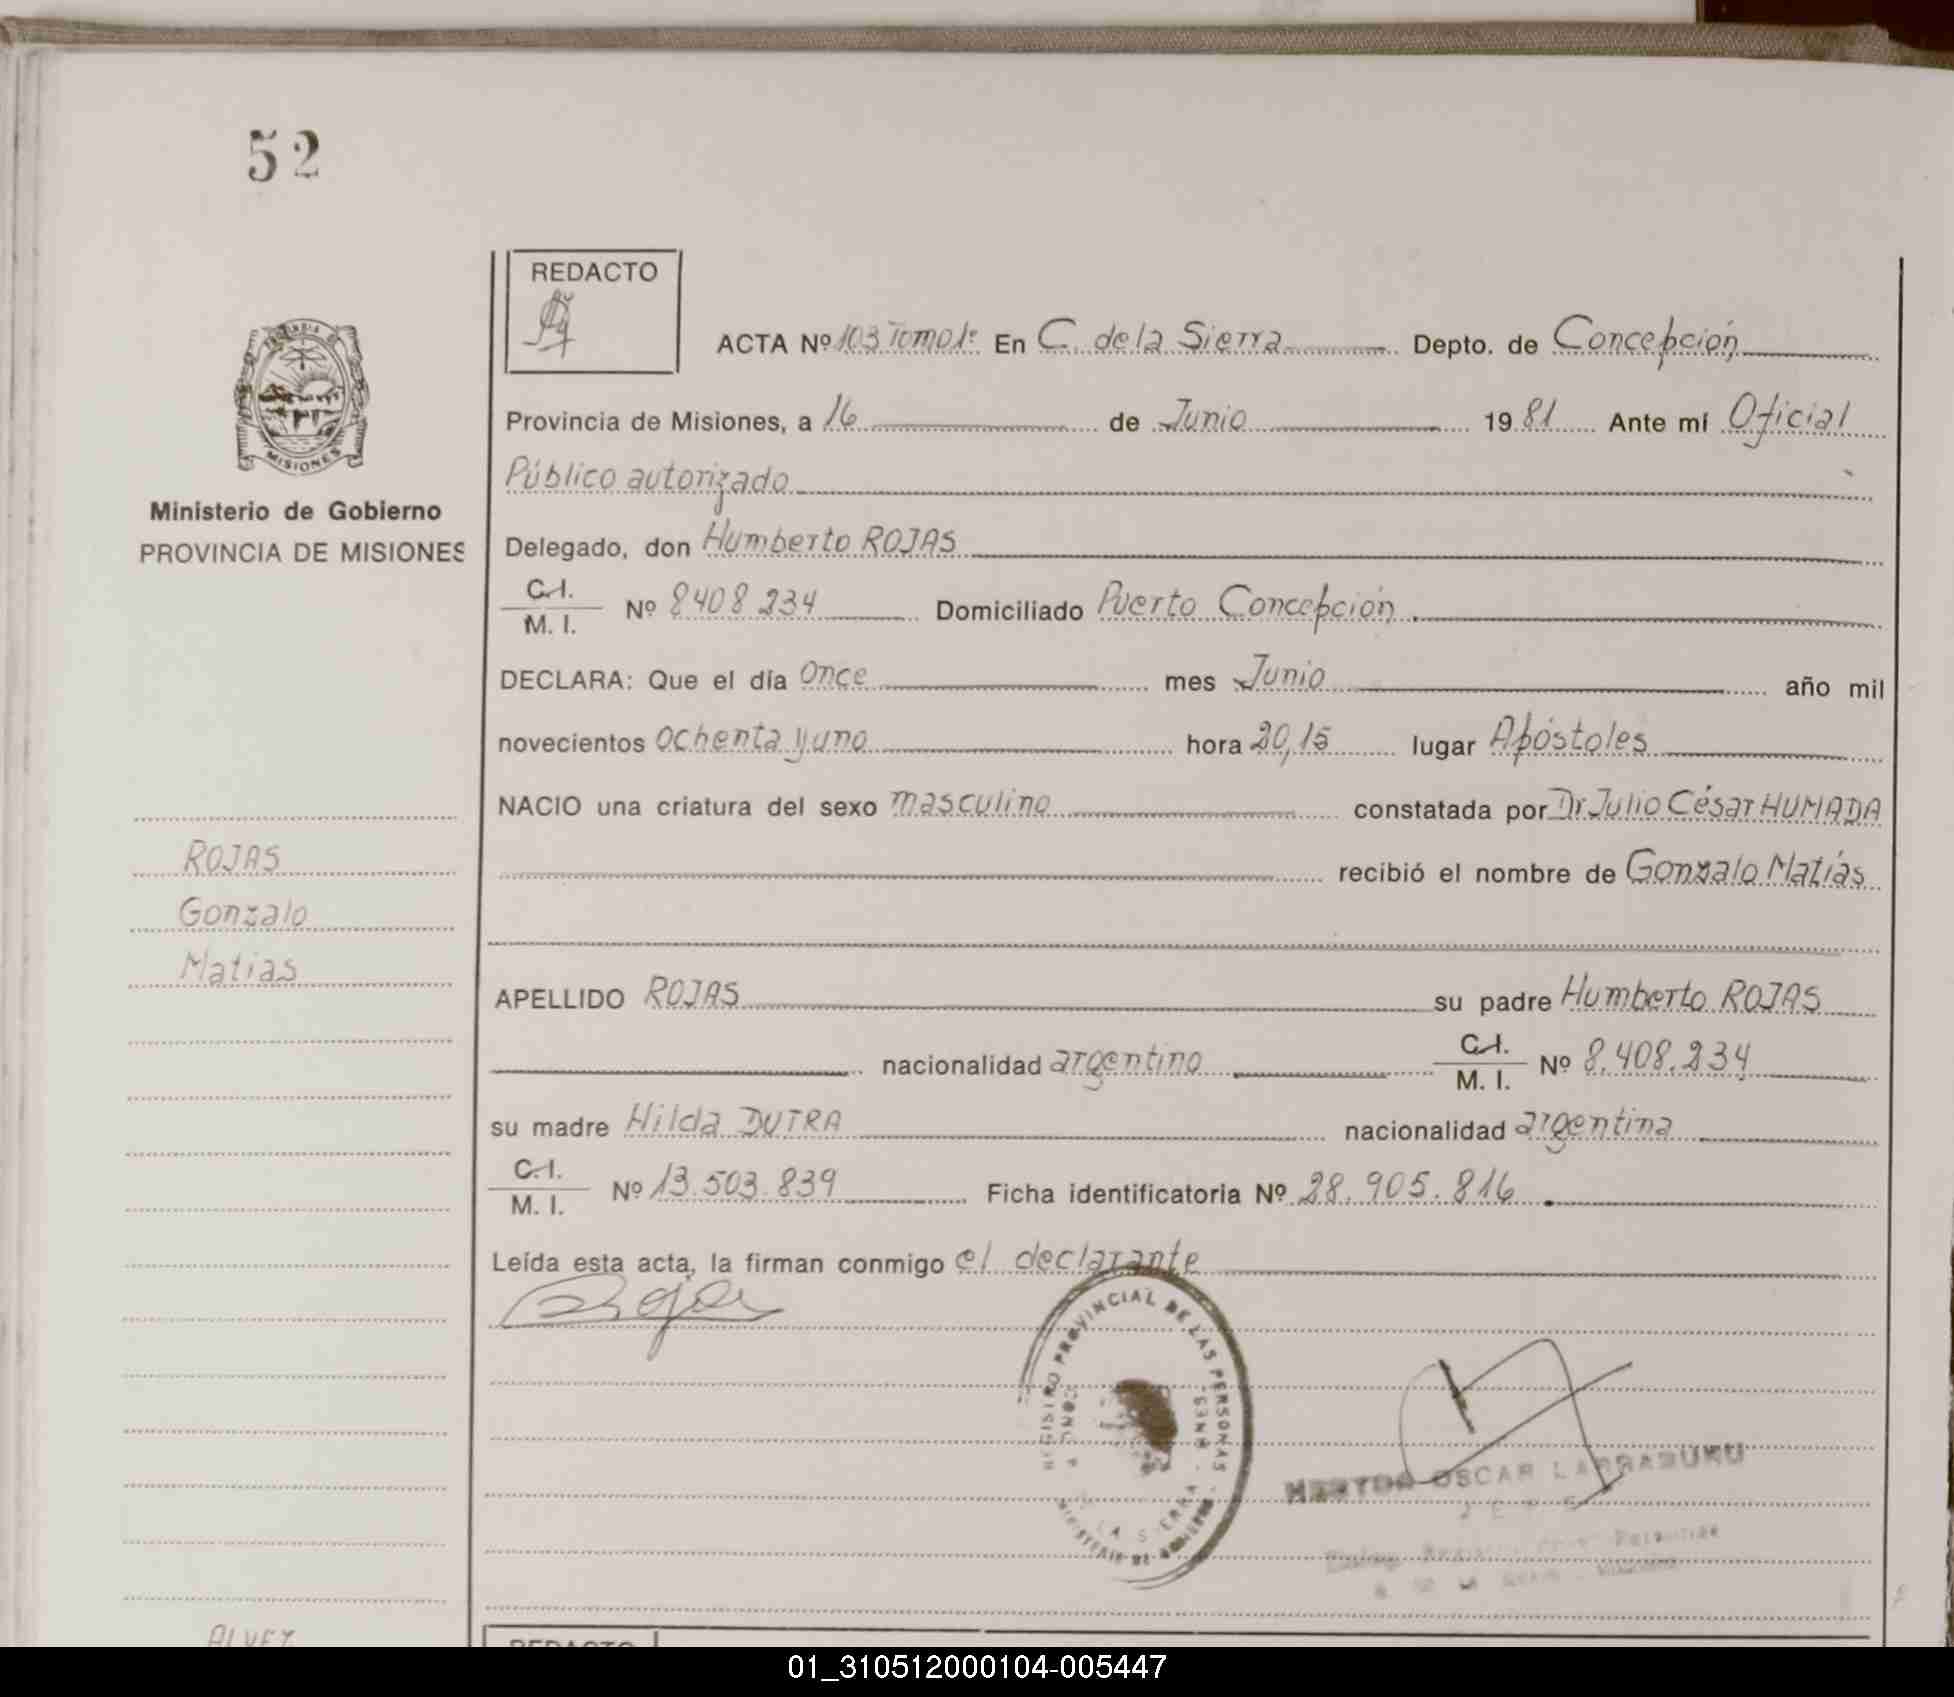 52
REDACTO
ACTA Nº 103 Tomo 1º En C. de la Sierra Depto. de Concepción
Provincia de Misiones, a 16 de Junio 1981 Ante mí Oficial
Público autorizado
MISIONES
Ministerio de Gobierno
PROVINCIA DE MISIONES
Delegado, don Humberto ROJAS
C.I.
M. I. Nº 8408234 Domiciliado Puerto Concepción
DECLARA: Que el día once mes Junio año mil
novecientos ochenta y uno hora 20,15 lugar Apóstoles
NACIO una criatura del sexo masculino constatada por Dr Julio César HUMADA
recibió el nombre de Gonzalo Matías
ROJAS
Gonzalo
Matias
APELLIDO ROJAS su padre Humberto ROJAS
nacionalidad argentino C.I. M. I. Nº 8.408.234
su madre Hilda DUTRA nacionalidad argentina
C.I.
M. I. Nº 13.503.839 Ficha identificatoria Nº 28.905.816
Leída esta acta, la firman conmigo el declarante
Rojas
REGISTRO PROVINCIAL DE LAS PERSONAS
LA SIERRA
OSCAR LARRABURU
REDACTO
01_310512000104-005447